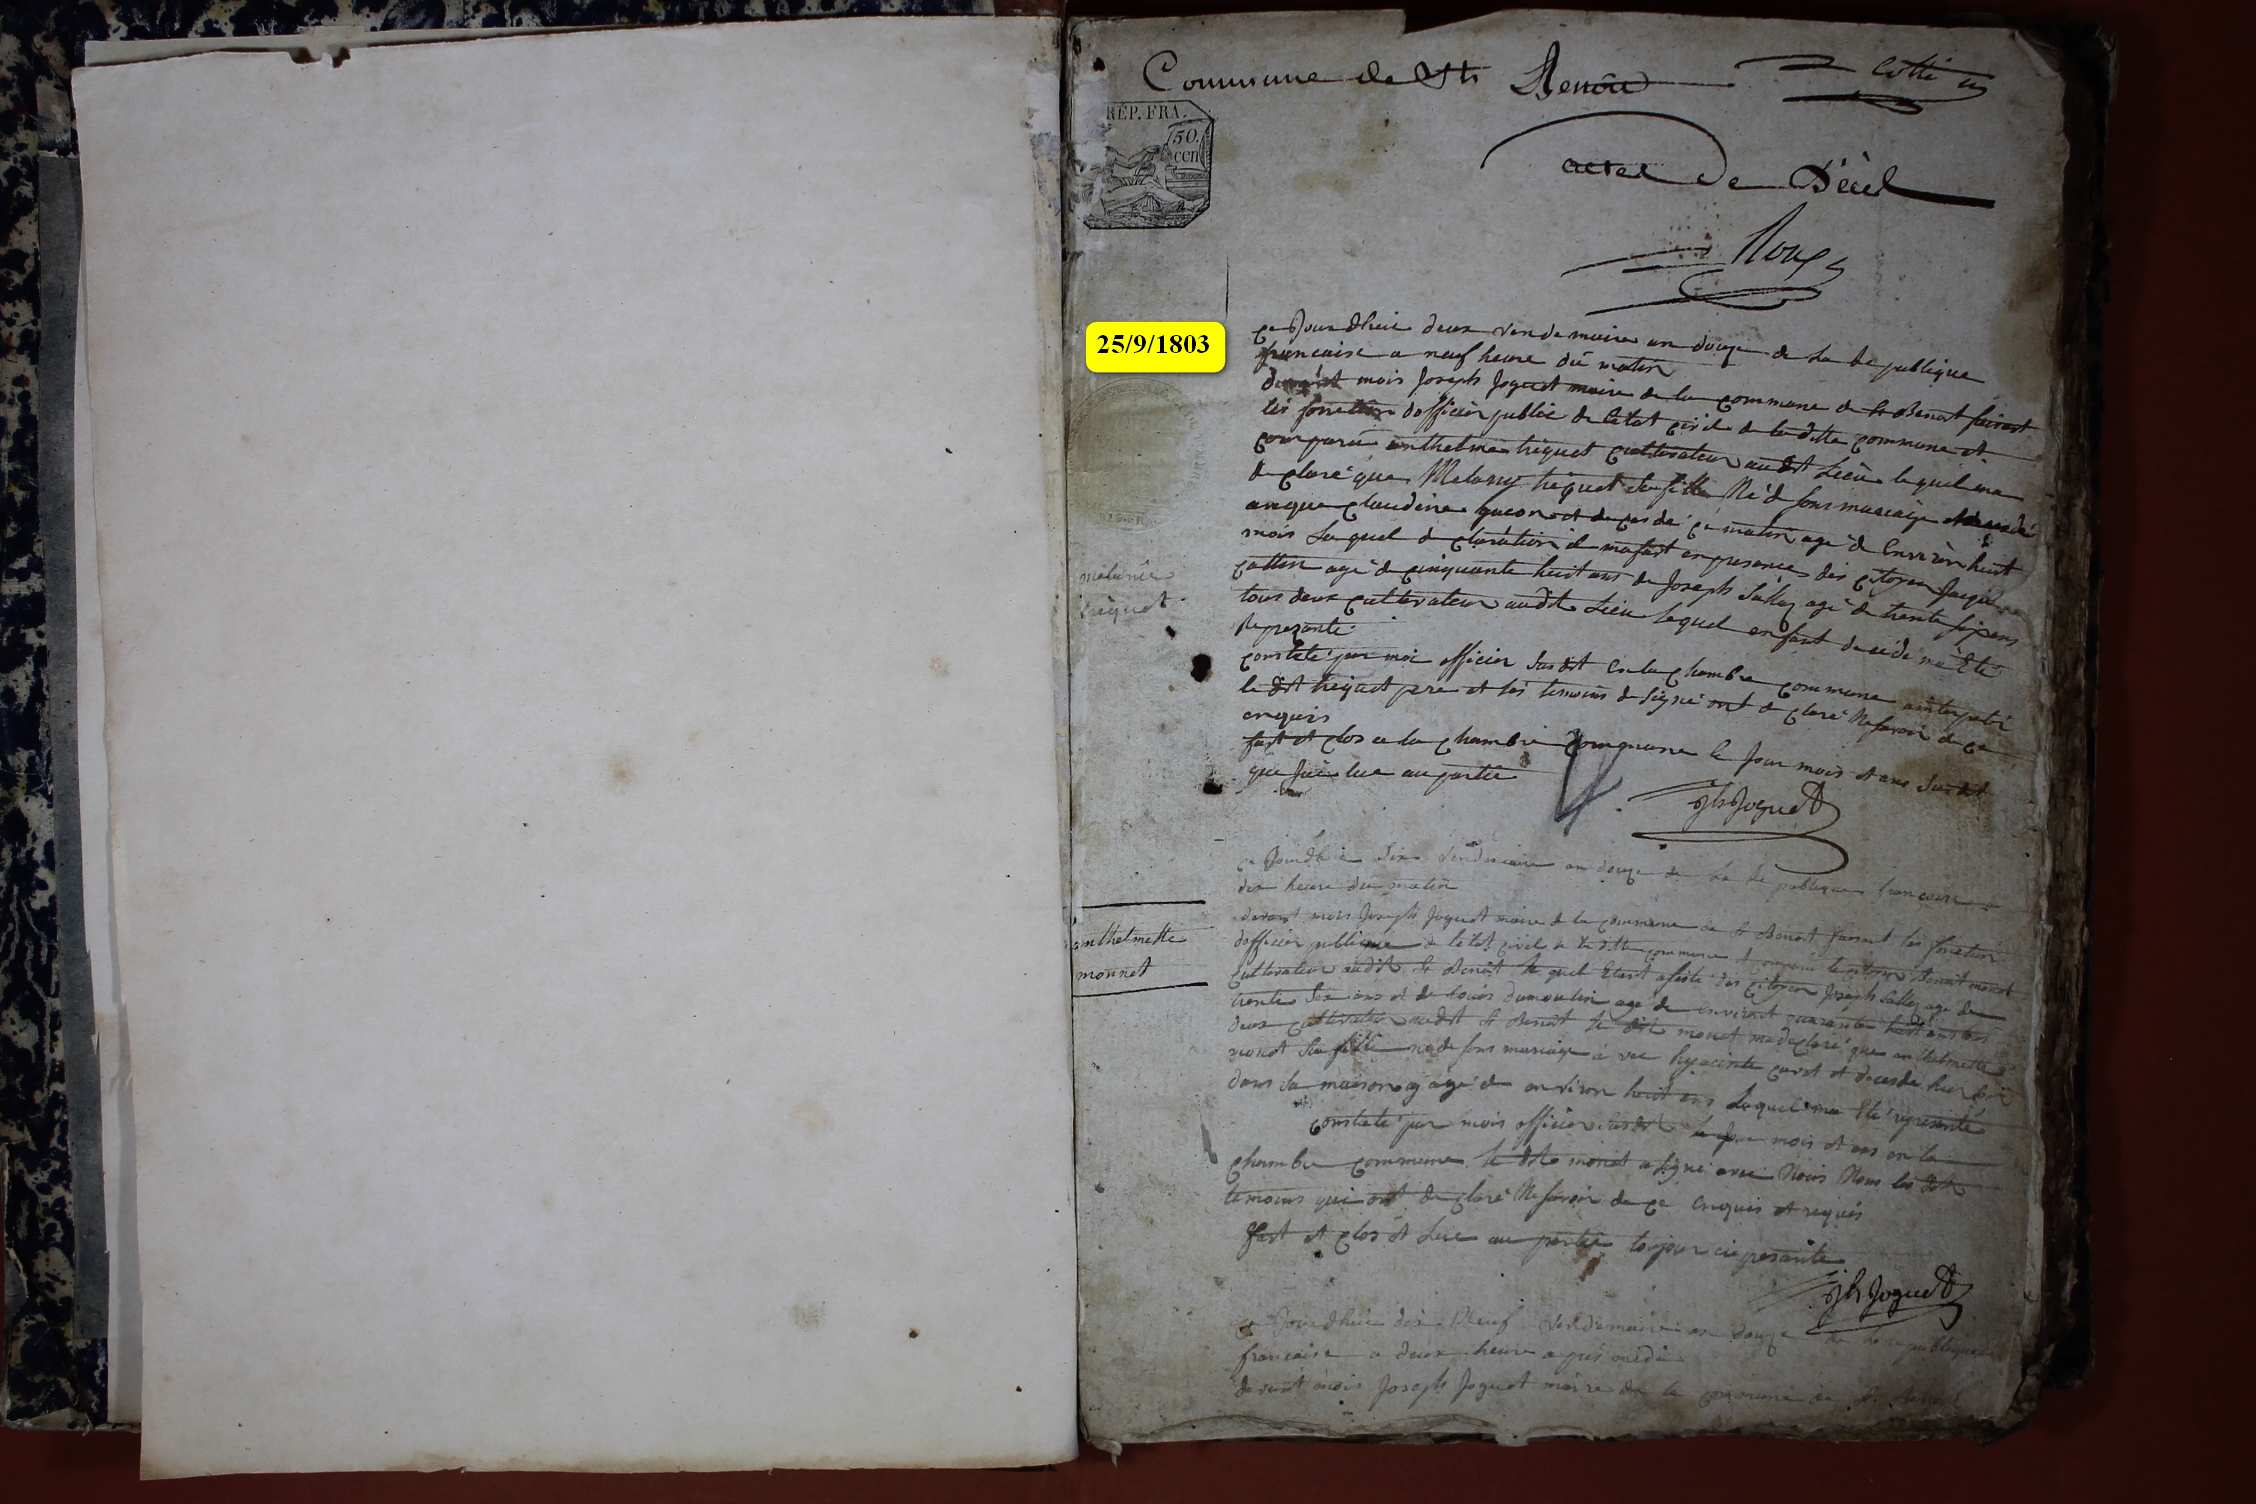 Commune de St Benoit
Cotté
RÉP. FRA.
50
cen
actes de Décès
Roux
25/9/1803
mélanie
triquet
ce Jourdhui deux vendemaire an douze de La Republique
francaise a neuf heure du matin
devant mois Joseph Joguet maire de la commune de St Benoit faisant
les fonction dofficier public de letat civil de la ditte commune et
comparu anthelme triquet cultivateur audit Lieu lequel ma
declaré que Melany triquet sa fille Né de sons mariage
aveque claudine et decedé ce matin agé de Environ huit
mois Laquel declaration il mafait en presence des citoyen Jacque
cattin agé de cinquante huit ans de Joseph Sallaz agé de trente six ans
tous deux cultivateur audit Lieu lequel enfant decede ma Eté
Reprezanté
constaté par moi officier susdit En la chambre commune
le dit triquet pere et les temoins de signé ont declaré Ne savoir de ce
enquis
fait et clos a la chambre commune le jour mois et ans susdit
que jai lue au partie
Jh Joguet
anthelmette
monnet
ce Jourdhui Six vendemaire an douze de La Republique francaise a
dix heure du matin
devant mois Joseph Joguet maire de la commune de St Benoit faisant les fonction
dofficier publique de letat civil de la ditte commune et comparu le citoyen Benoit monet
cultivateur audit St Benoit le quel Etant asisté des citoyen Joseph Sallaz agé de
trente Six ans et de Louis dumoulin agé de environt quarante huit ans tous
deux cultivateur audit St Benoit le dit monet ma declaré que anthelmette
monet Sa fille né de sons mariage a vec hyacinte et decedé hier soir
dans sa maison agé de environ huit ans Laquel ma Eté representé
constaté par mois officier susdit le jour mois et ans en la
chambre commune le dit monet a signé avec Nous Nons les dits
temoins qui ont declaré Ne savoir de ce enquis et requis
fait et clos et Lue au partie toujour presante
Jh Joguet
ce Jourdhui dix Neuf vendemaire an douze de la republique
francaise a deux heure apres midi
devant mois Joseph Joguet maire de la commune de St Benoit